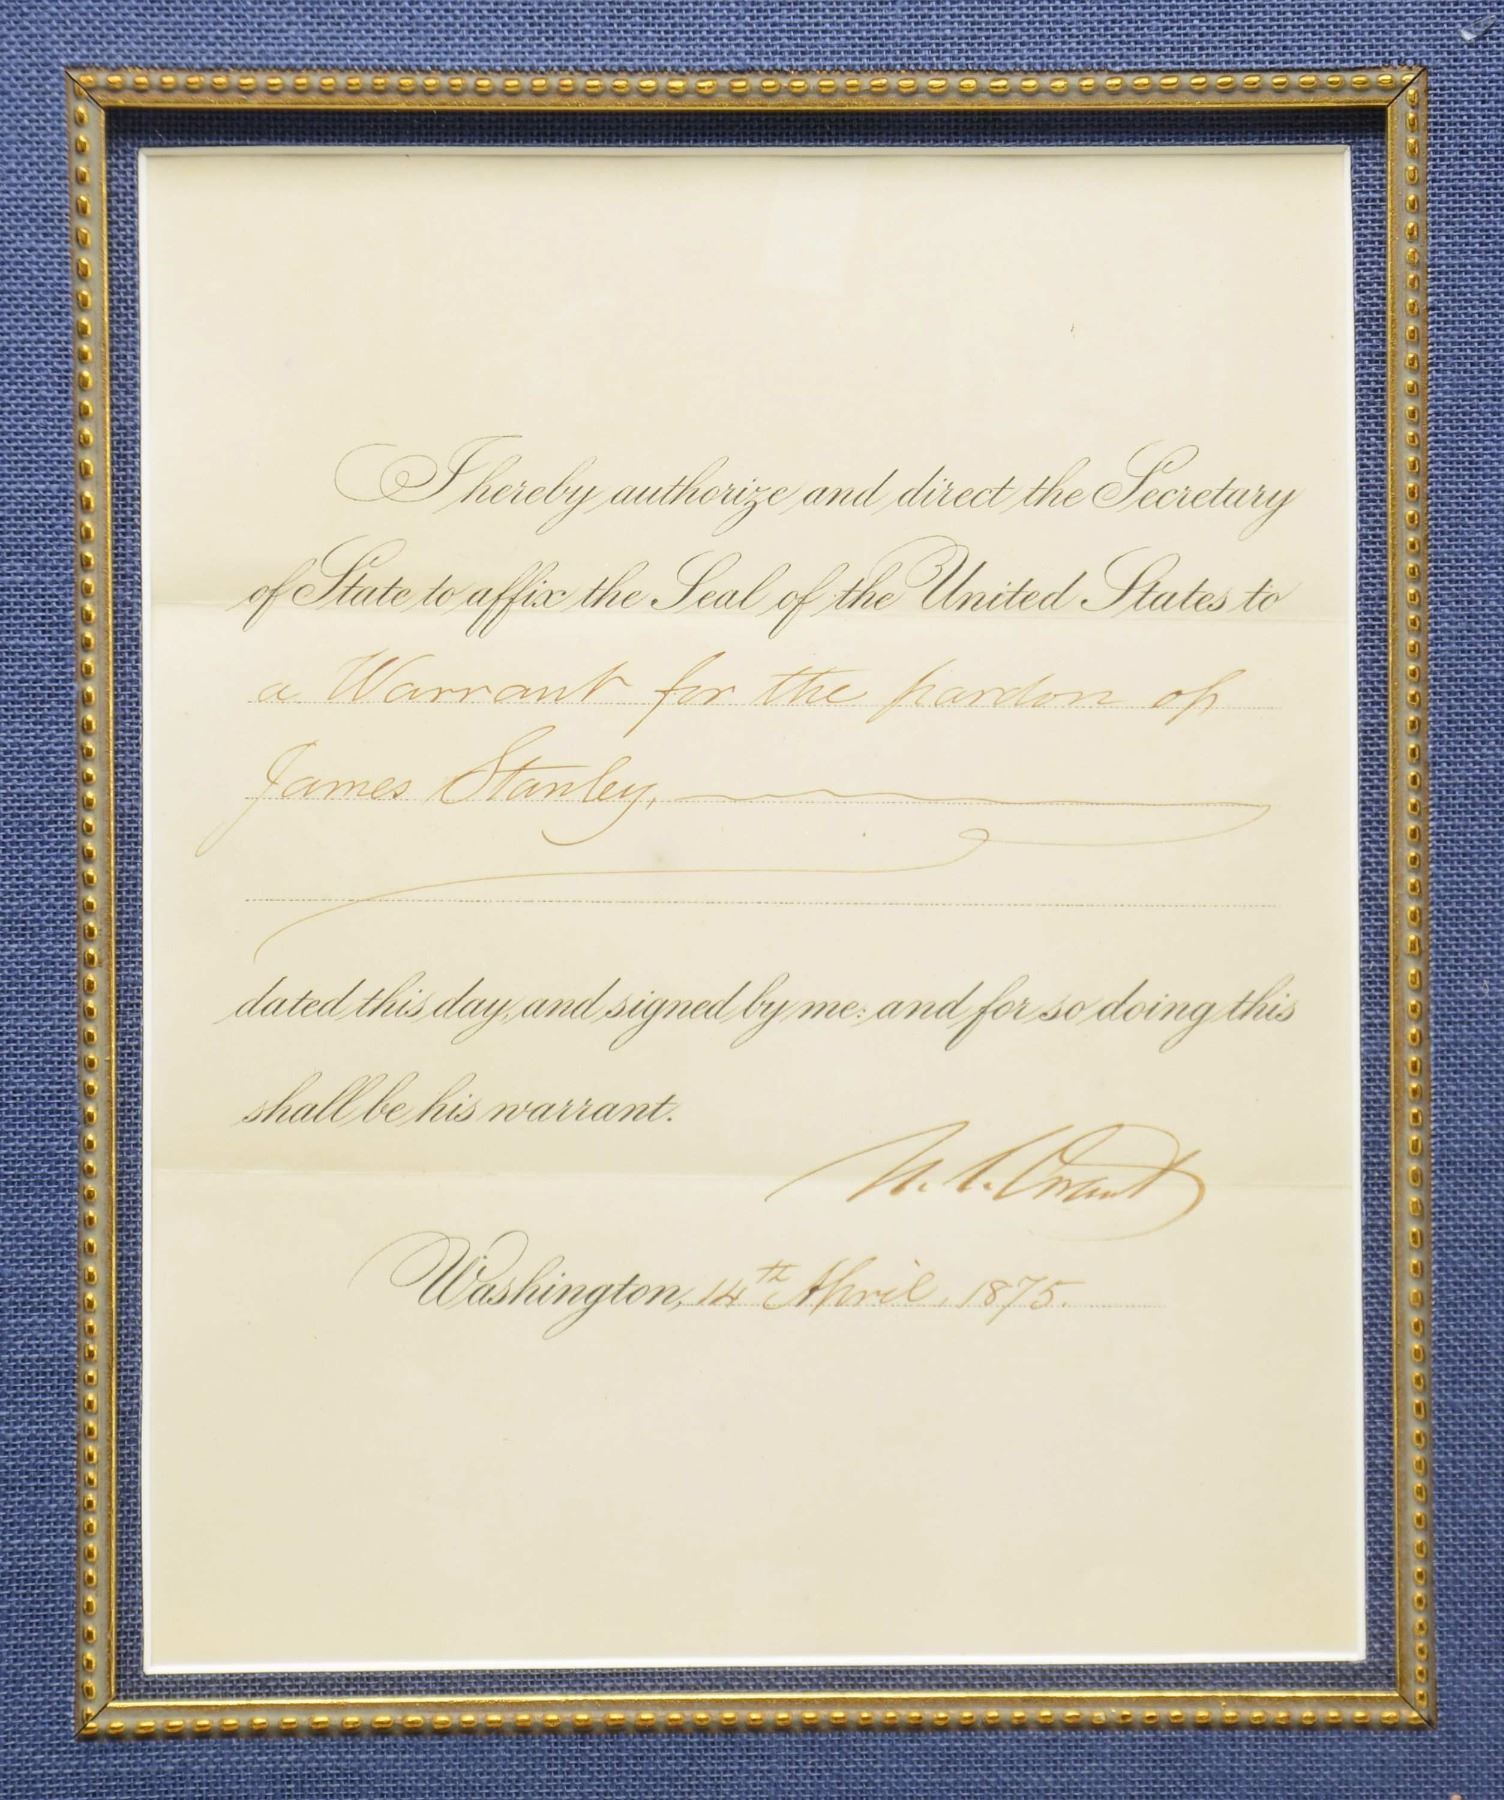 I hereby authorize and direct the Secretary
of State to affix the Seal of the United States to
a Warrant for the pardon of
James Stanley,
dated this day, and signed by me: and for so doing this
shall be his warrant.
U. S. Grant
Washington, 14th April, 1875.